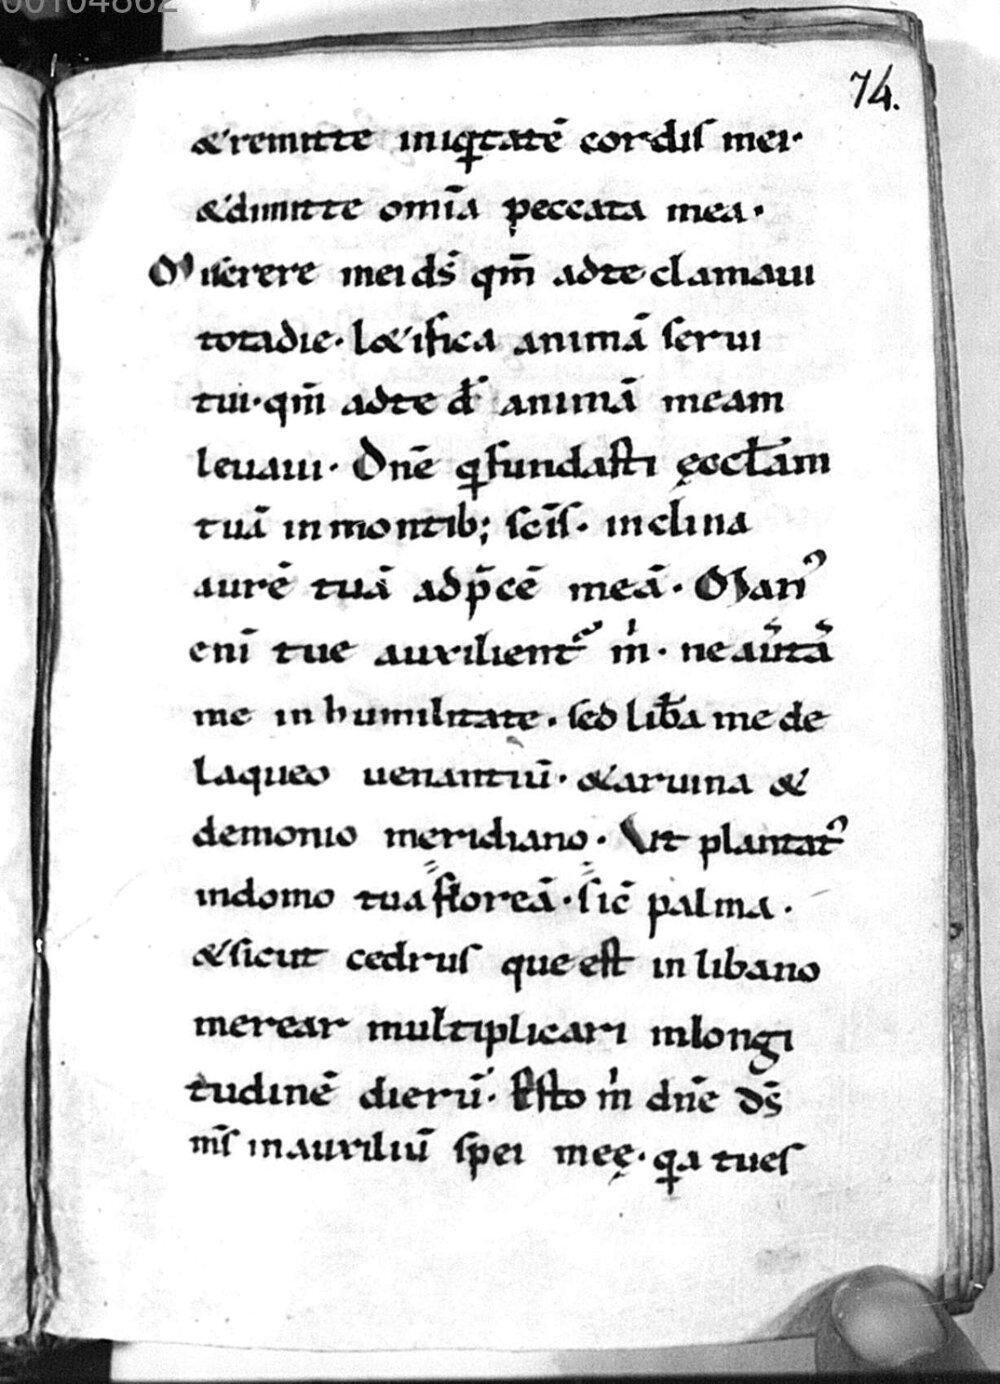 00104862
74.
&remitte iniqtatē cordis mei·
&dimitte omīa peccata mea·
Miserere mei ds̄ qm̄ adte clamaui
totadie· l&ifica animā serui
tui· qm̄ adte d̄ animā meam
leuaui· Dn̄e q fundasti ęccłam
tuā in montib; sc̄is· inclina
aurē tuā adp̄cē meā· Man᾽
enī tue auxilient᾽ m̄· ne au͛tā
me in humilitate· sed lib̄a me de
laqueo uenantiū· &aruina &
demonio meridiano· Ut plantat᾽
indomo tua floreā· sic̄ palma·
&sicut cedrus que est in libano
merear multiplicari inlongi
tudinē dierū· Esto m̄ dn̄e ds̄
ms̄ inauxiliū spei meę· qa tues